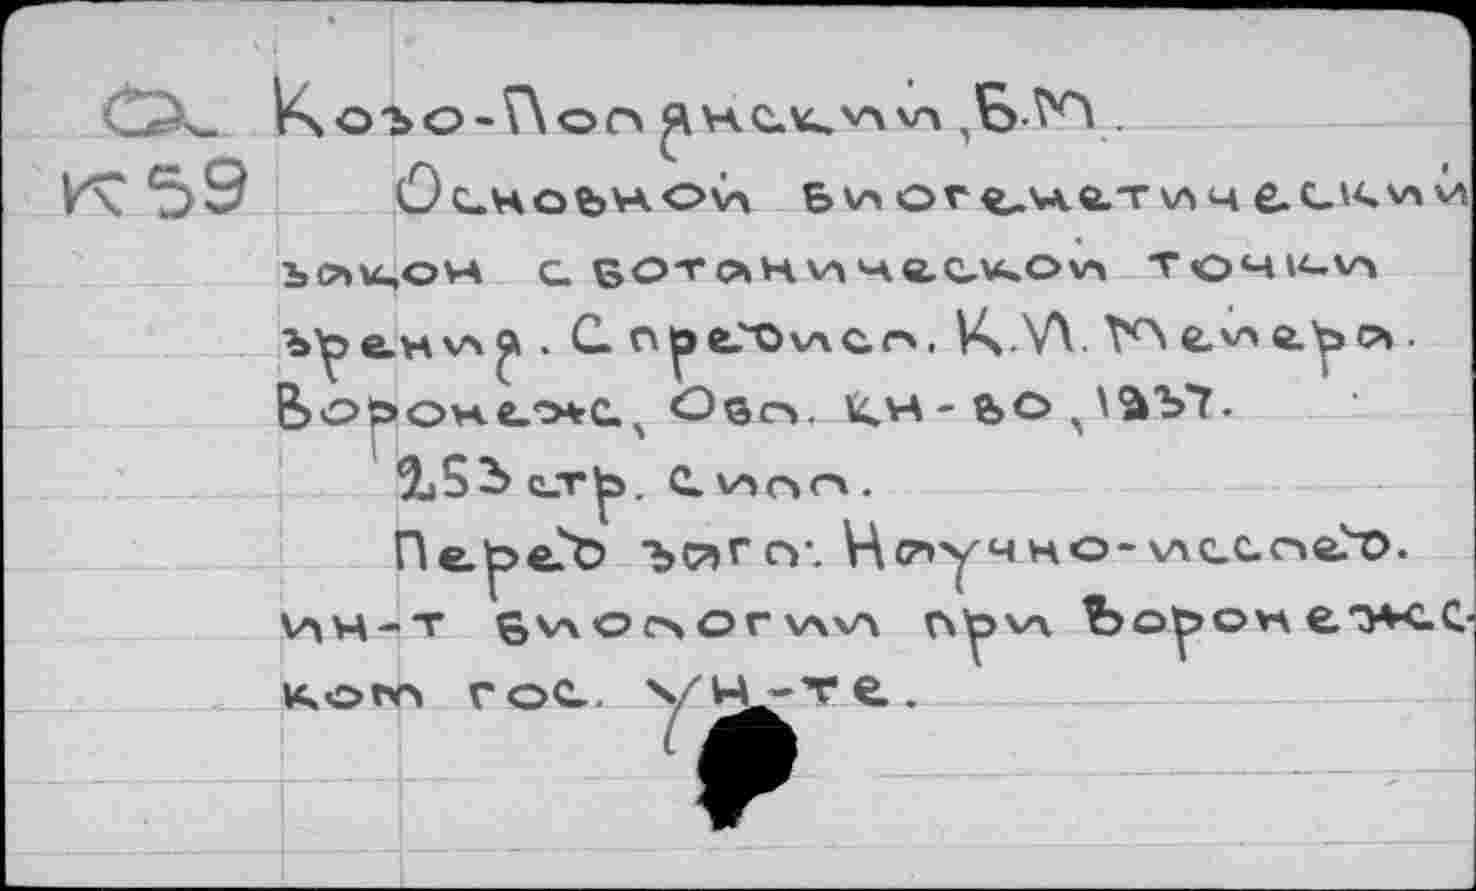 Козо-Полянский, Б.М.
К59 Основной биогенетический
закон с ботанической точки
зрения. С предисл. К.И. Мейера.
Воронеж, Обл. кн-во, 1937.
253 стр. с илл.
Перед загл: Научно-исслед.
ин-т биологии при Воронежс-
ком гос. ун-те.